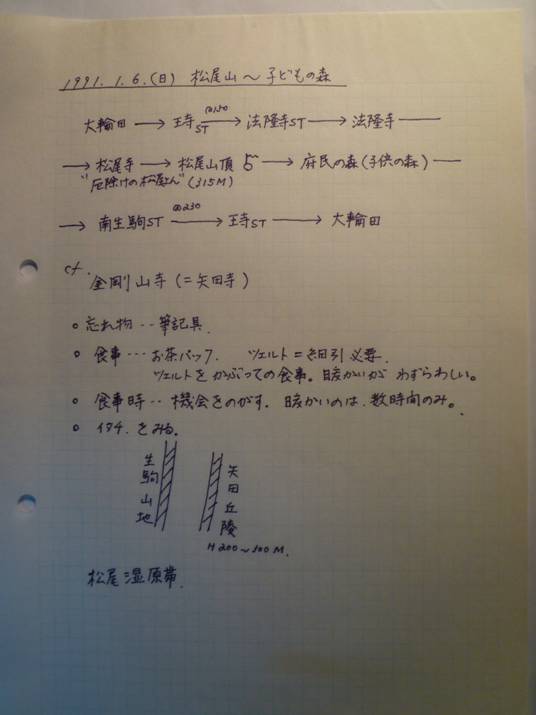 1991.1.6.(日) 松尾山～子どもの森
大輪田 → 王寺ST @150→ 法隆寺ST → 法隆寺 ―
→ 松尾寺 → 松尾山頂 → 府民の森(子供の森) ―
"厄除けの松尾さん" (315M)
→ 南生駒ST @230→ 王寺ST → 大輪田
cf.
金剛山寺 (=矢田寺)
○ 忘れ物‥筆記具.
○ 食事…お茶パック. ツェルト=細引必要.
ツェルトをかぶっての食事。暖かいが わずらわしい。
○ 食事時‥機会をのがす. 暖かいのは.数時間のみ。
○ イタチ.をみる.
生駒山地
矢田丘陵
H200～300M.
松尾湿原帯.